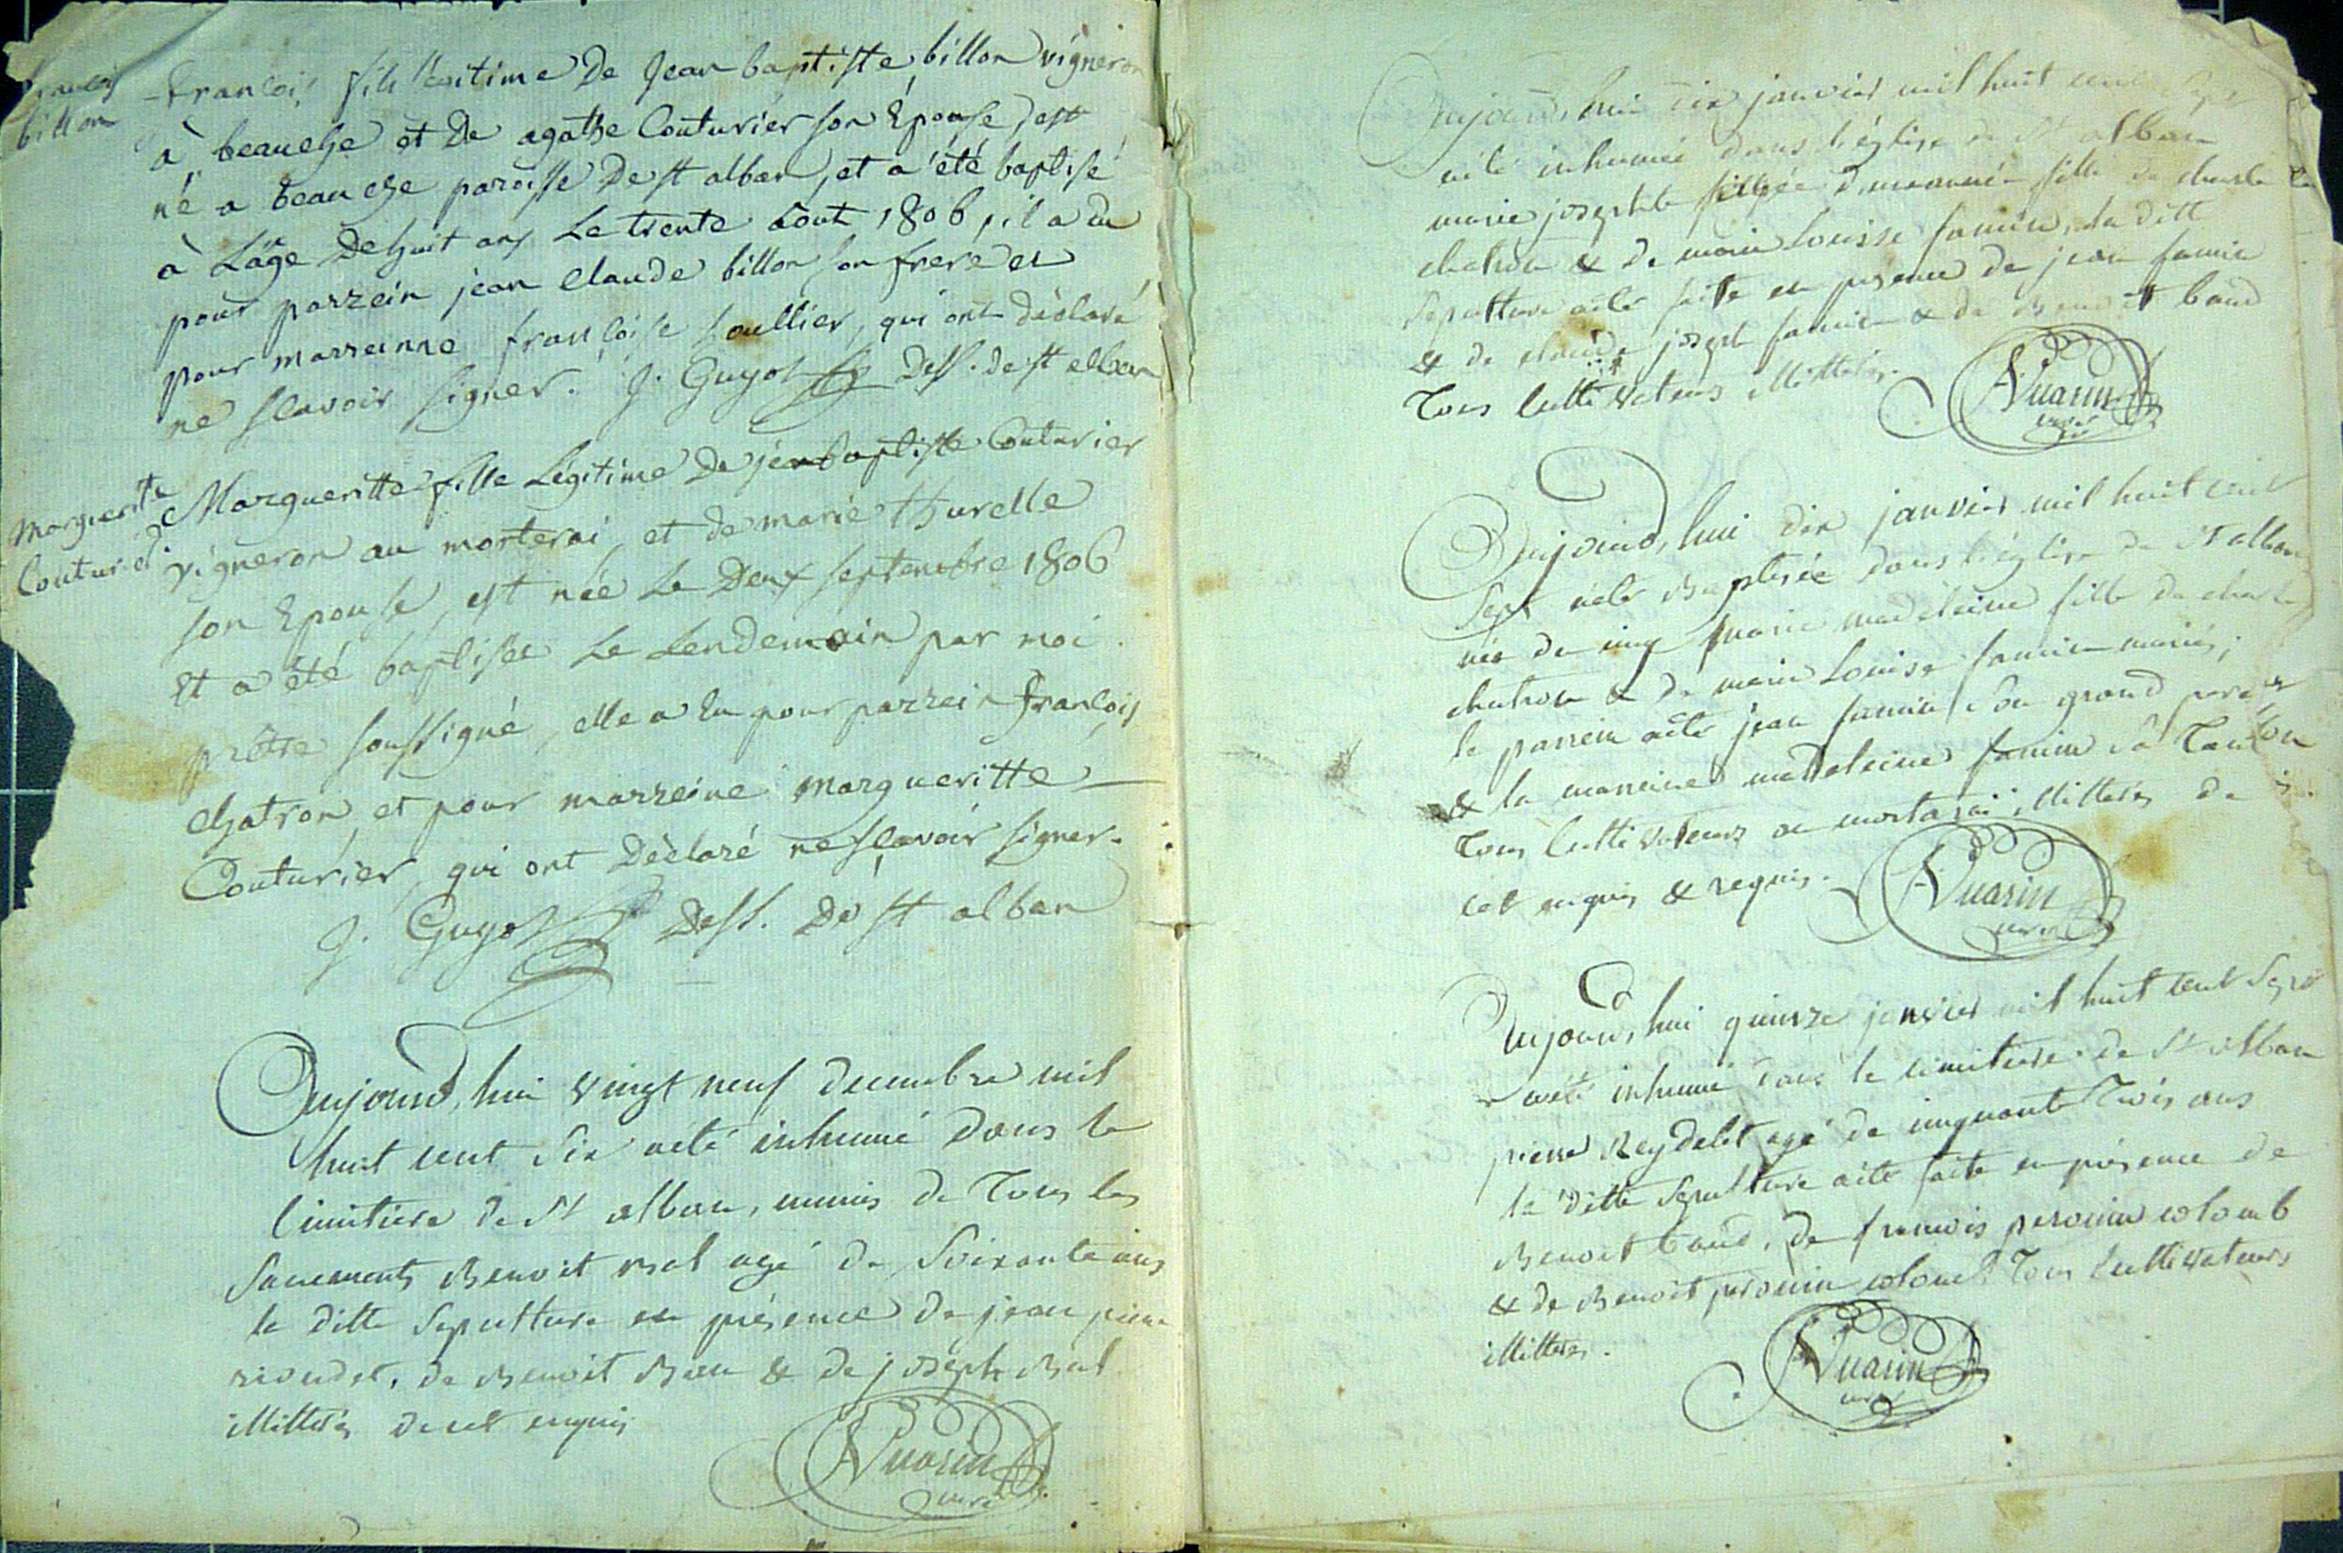 françois
billon
françois fils légitime De Jean baptiste billon vigneron
à beauche et De agathe Couturier son Epouse, est
né a beauche paroisse De st alban, et a été baptisé
à L'âge De huit ans Le trente Aout 1806, il a eu
pour parrein jean Claude billon son frere et
pour marreinne françoise soullier, qui ont déclaré
ne sçavoir signer. J. Guyot Dess. de st alban
Margueritte
Couturier
Margueritte fille Légitime De jean baptiste Couturier
vigneron au morterai, et de marie thurelle
son Epouse, est née Le Deux septembre 1806
Et a été baptisée Le Lendemain par moi
prêtre soussigné, elle a Eu pour parrein françois
Chatron, et pour marreine margueritte
Couturier, qui ont Déclaré ne sçavoir signer.
J. Guyot Dess. De st alban
Aujourd,hui vingt neuf decembre mil
huit cent six aété inhumé dans le
cimitiere de St alban, munis de Tous les
sacrements Benoit agé de soixante ans
la ditte sepulture en présence de jean pierre
riondet, de Benoit & de joseph
illitterés de cet enquis
Vuarin
curé
Aujourd,hui dix janvier mil huit cent sept
aété inhumée dans l'église de St alban
marie josephte fille de charle
chatron & de marie Louise famin, la ditt
sepulture aété faite en presence de jean famin
& de claude joseph famin & de Benoit baud
Tous cultivateurs illitterés.
Vuarin
curé
Aujourd,hui dix janvier mil huit cent
sept aété Baptisée dans l'église de St alban
née de marie madeleine fille de charle
chatron & de marie Louise famin mariés;
le parrein aété jean famin son grand pere
& la marreine madeleine famin sa Tante
Tous cultivateurs au mortarai illitterés de
cet enquis & requis.
Vuarin
curé
Aujourd,hui quinze janvier mil huit cent sept
aété inhumé dans le cimitiere de St alban
pierre Reydelet agé de cinquante Trois ans
la ditte sepulture aété faite en présence de
Benoit baud, de francois perouin colomb
& de Benoit perouin colomb Tous cultivateurs
illitterés.
Vuarin
curé